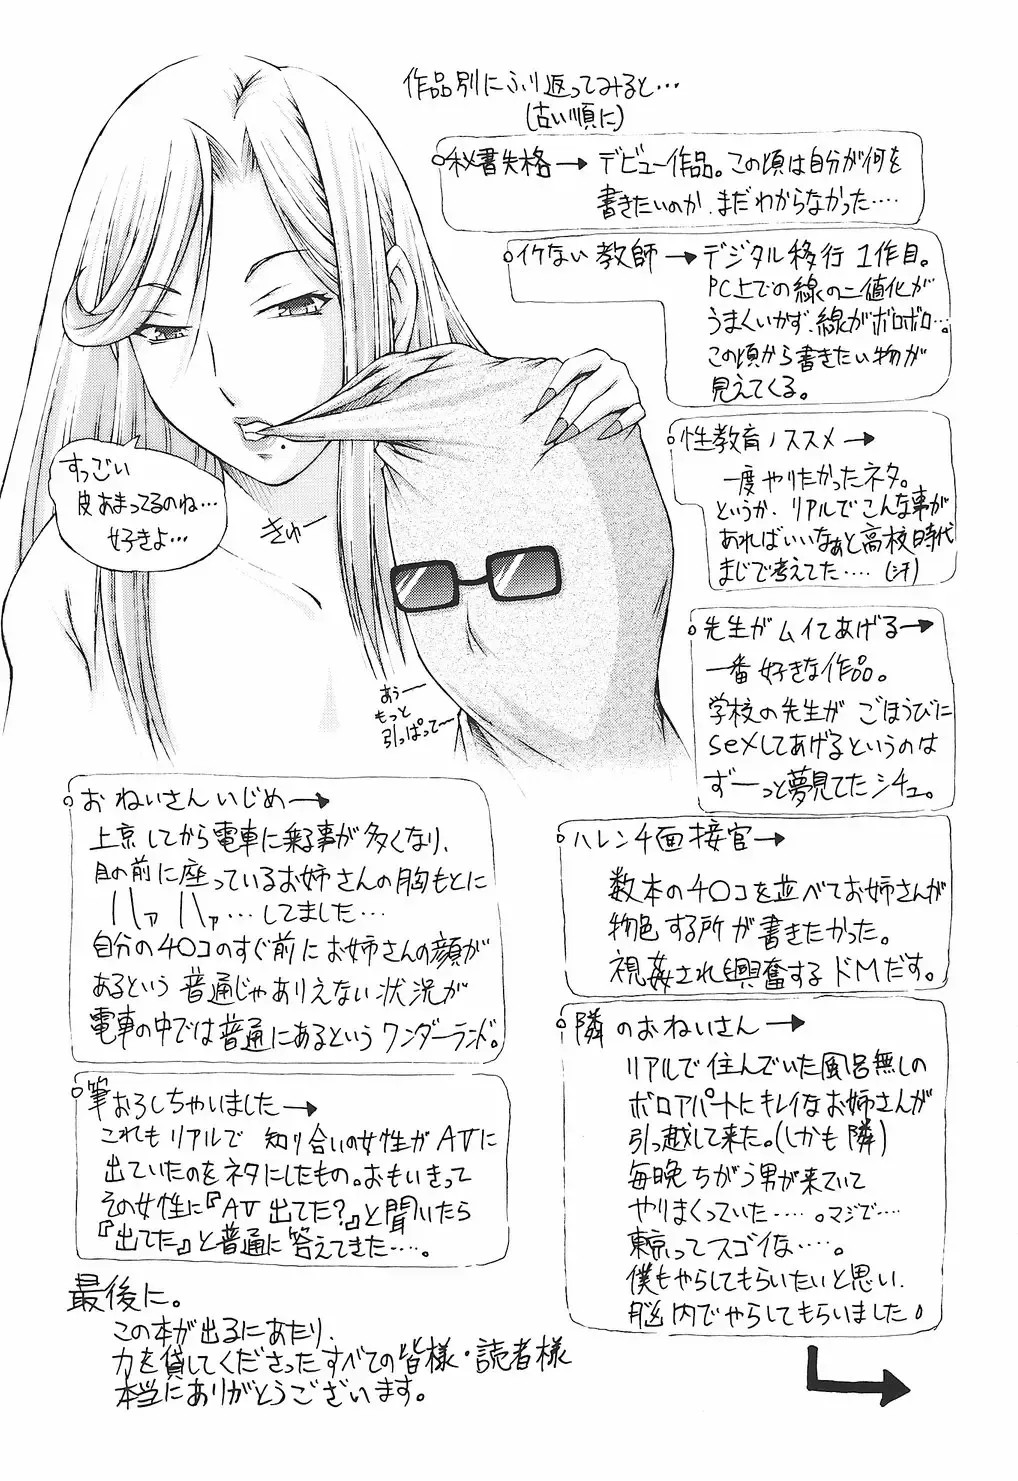 作品別にふり返ってみると…
(古い順に)
秘書失格→デビュー作品。この頃は自分が何を
書きたいのか、まだわからなかった‥‥
イケない教師→デジタル移行1作目。
PC上での線の二値化が
うまくいかず、線がボロボロ…。
この頃から書きたい物が
見えてくる。
性教育ノススメ→
一度やりたかったネタ。
というか、リアルでこんな事が
あればいいなぁと高校時代
まじで考えてた‥‥(汗)
先生がムイてあげる→
一番好きな作品。
学校の先生がごほうびに
sexしてあげるというのは
ずーっと夢見てたシチュ。
すっごい
皮あまってるのね…
好きよ…
きゅー
あぅー
もっと
引っぱって〜
おねいさんいじめ→
上京してから電車に乗る事が多くなり、
目の前に座っているお姉さんの胸もとに
ハァハァ…してました…
自分のチ○コのすぐ前にお姉さんの顔が
あるという普通じゃありえない状況が
電車の中では普通にあるというワンダーランド。
ハレンチ面接官→
数本のチ○コを並べてお姉さんが
物色する所が書きたかった。
視姦され興奮するドMだす。
筆おろしちゃいました→
これもリアルで知り合いの女性がAVに
出ていたのをネタにしたもの。おもいきって
その女性に『AV出てた?』と聞いたら
『出てた』と普通に答えてきた‥‥。
隣のおねいさん→
リアルで住んでいた風呂無しの
ボロアパートにキレイなお姉さんが
引っ越して来た。(しかも隣)
毎晩ちがう男が来ていて
やりまくっていた‥‥。マジで‥‥
東京ってスゴイな‥‥。
僕もやらしてもらいたいと思い、
脳内でやらしてもらいました。
最後に。
この本が出るにあたり、
力を貸してくださったすべての皆様・読者様
本当にありがとうございます。